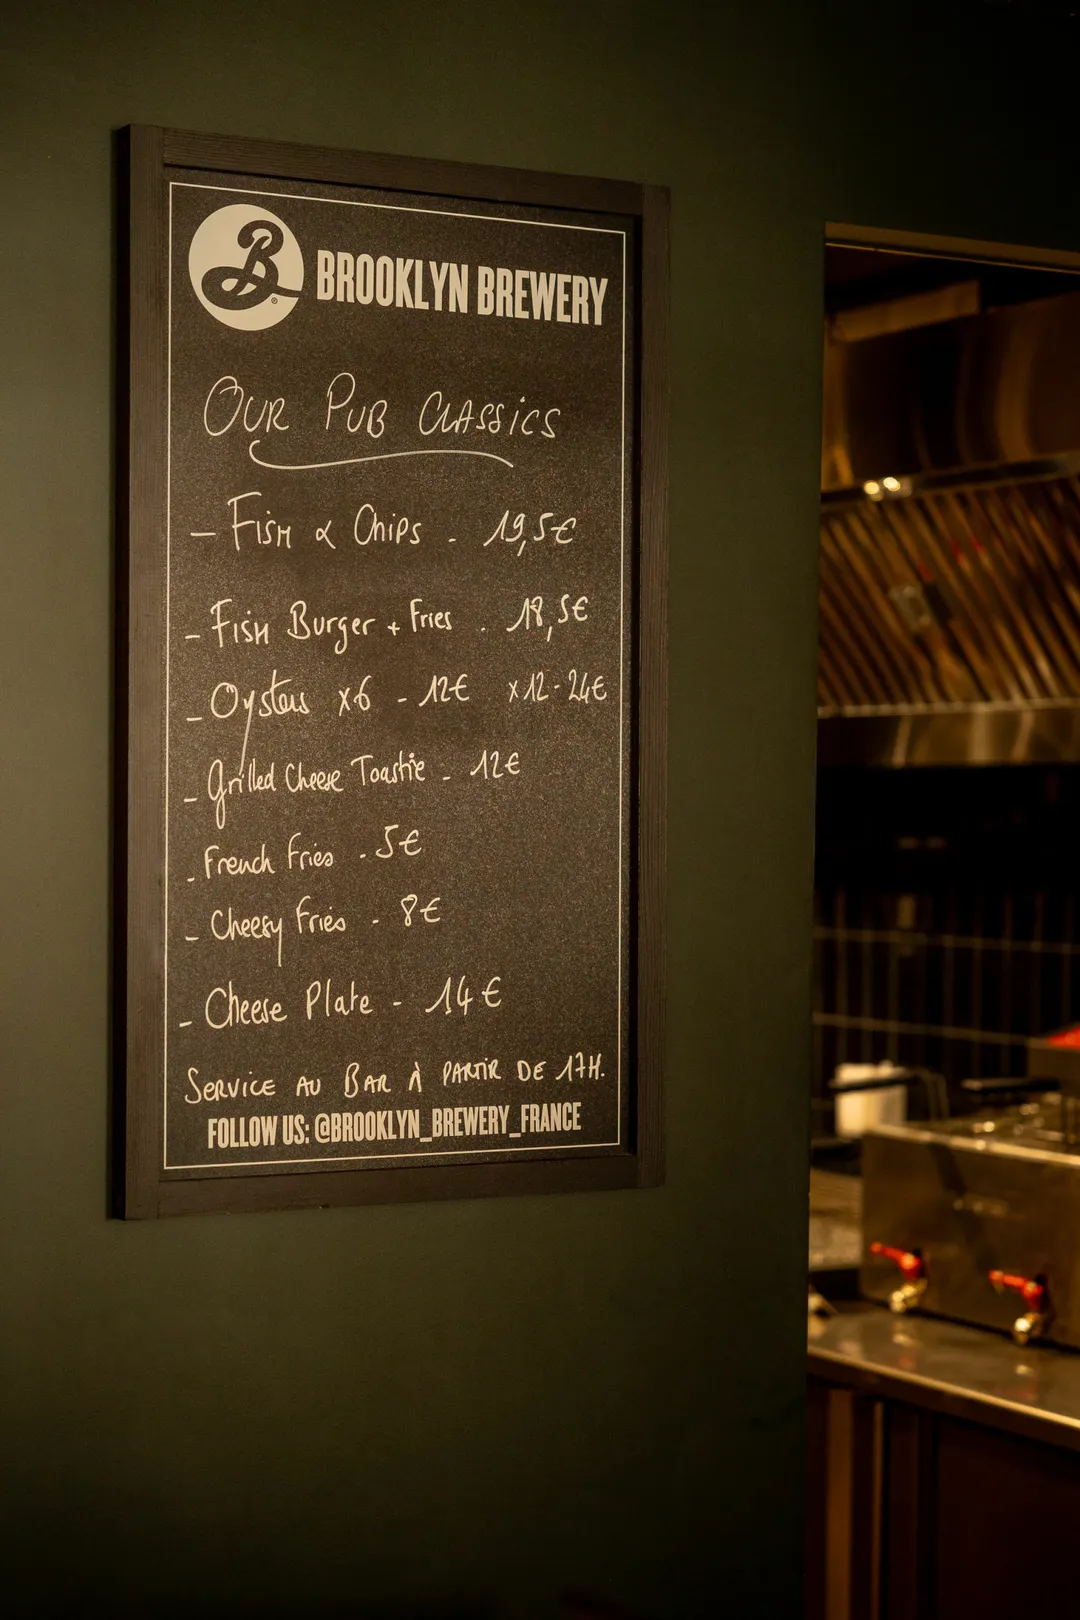 B
BROOKLYN BREWERY
OUR PUB CLASSICS
- FISH & Chips - 19,5€
- FISH Burger + Fries - 18,5€
- Oysters x6 - 12€ x12 - 24€
- Grilled Cheese Toastie - 12€
- French Fries - 5€
- Cheesy Fries - 8€
- Cheese Plate - 14€
SERVICE AU BAR À PARTIR DE 17H.
FOLLOW US: @BROOKLYN_BREWERY_FRANCE